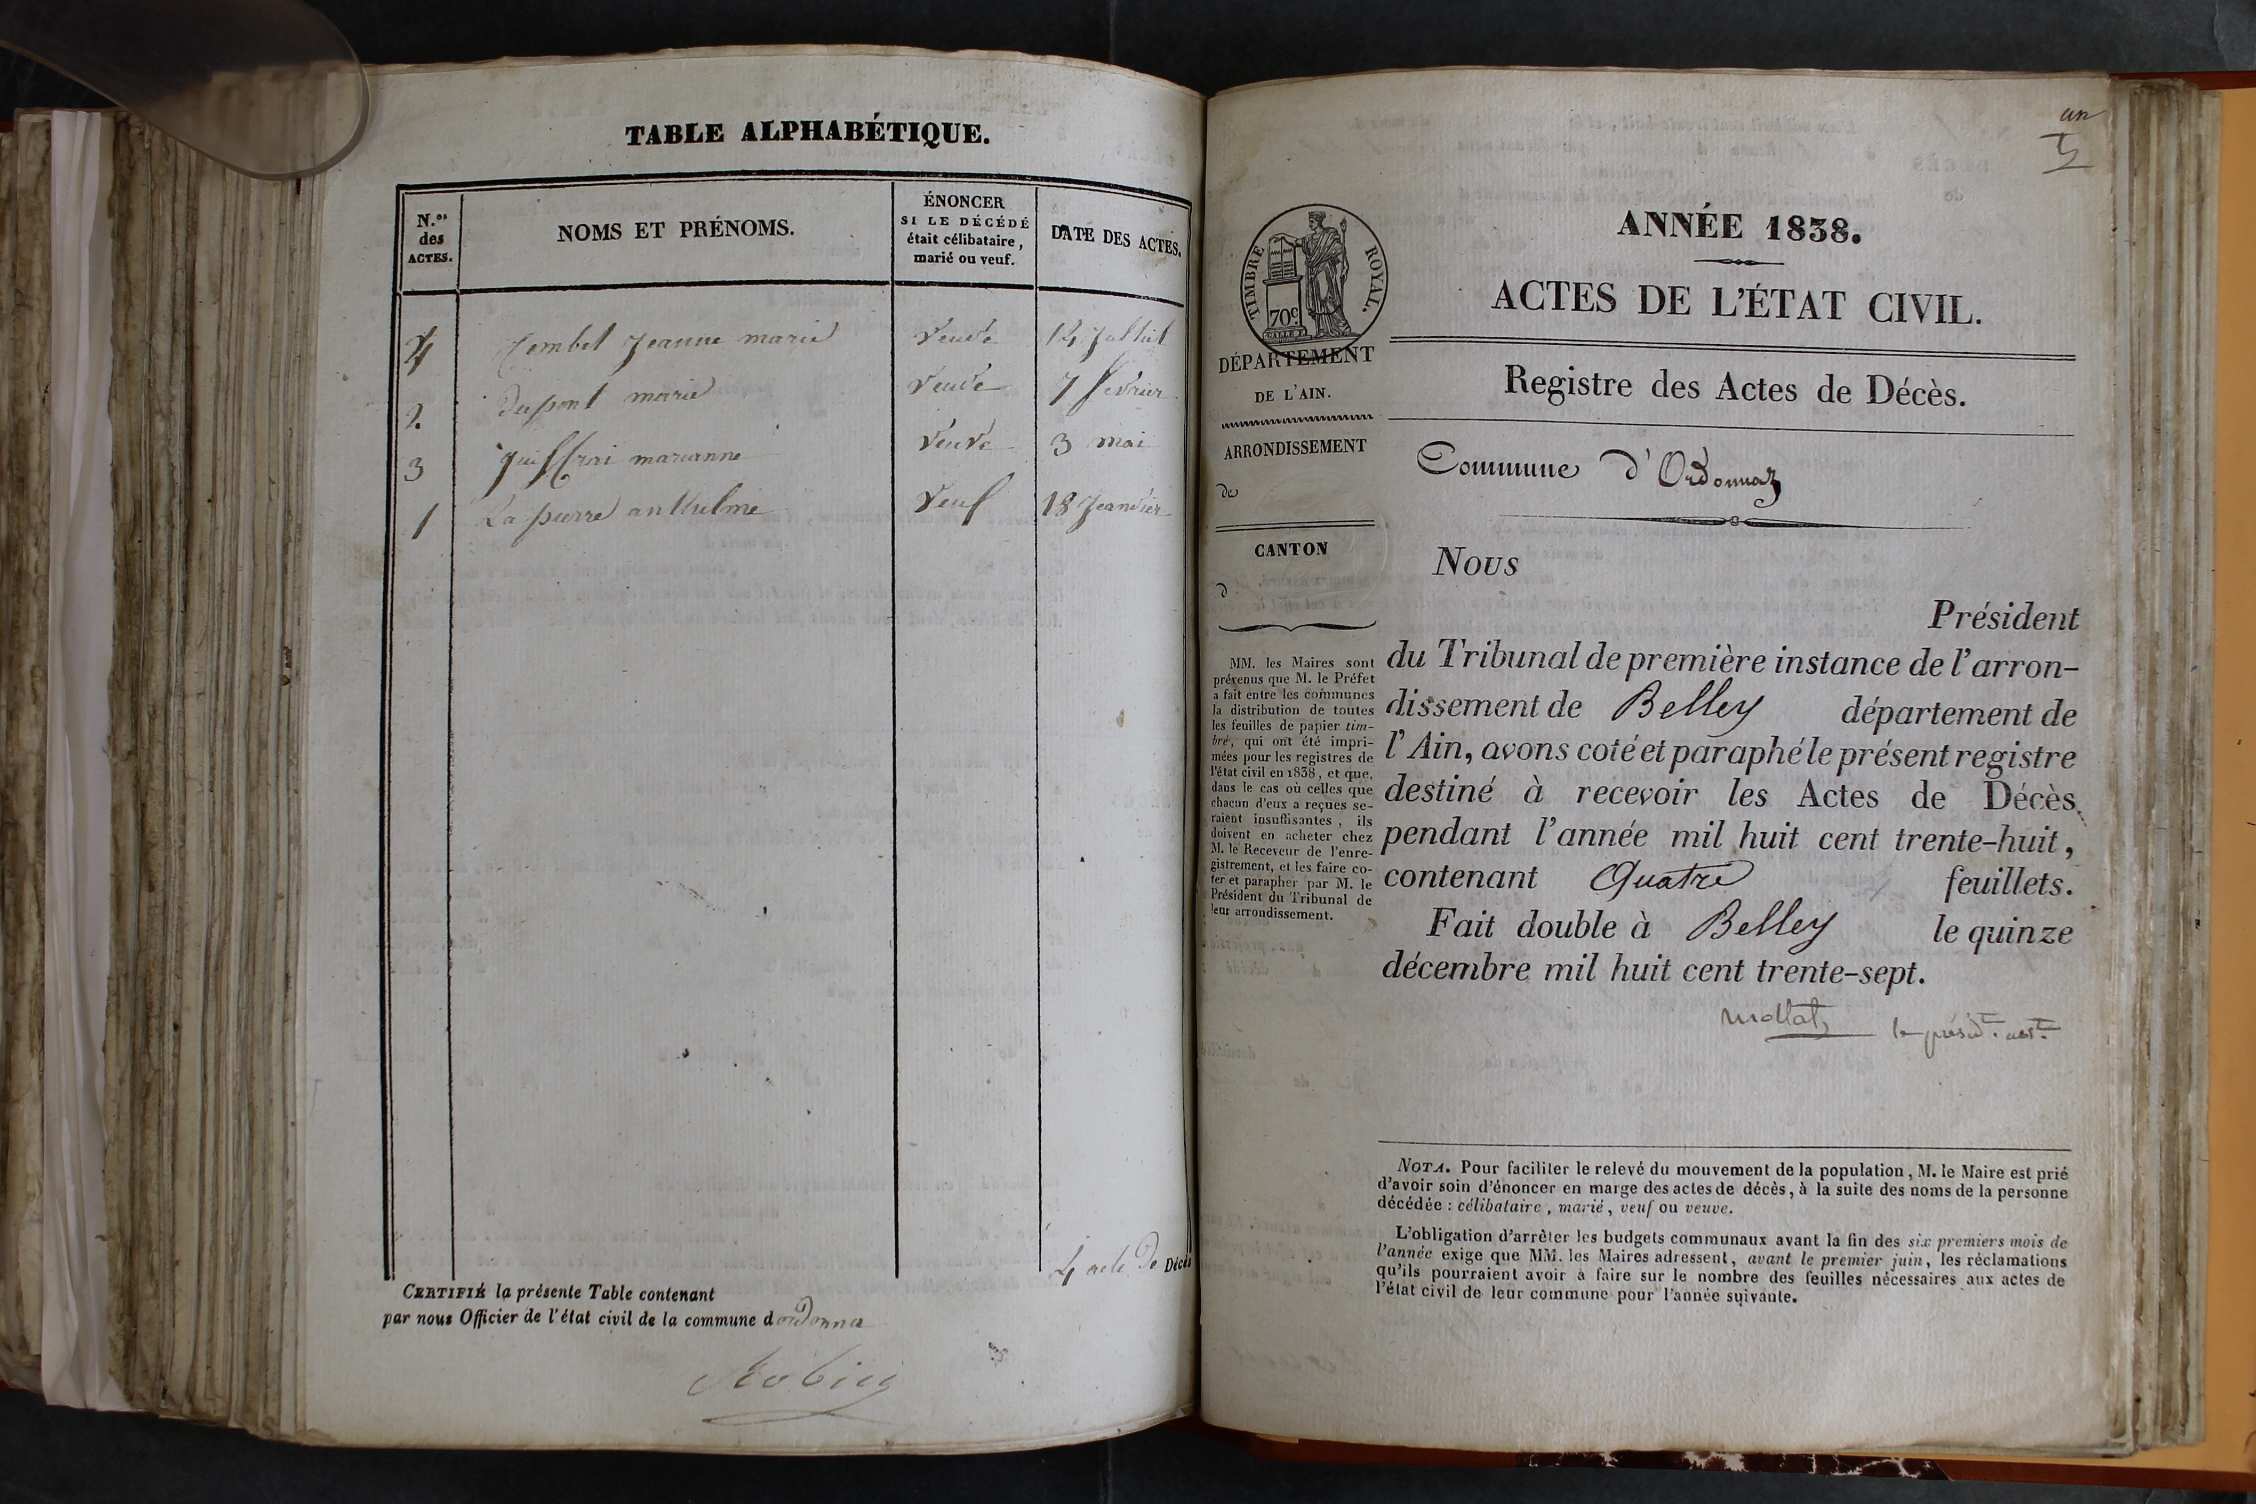 TABLE ALPHABÉTIQUE.
N.os
des
ACTES.
NOMS ET PRÉNOMS.
ÉNONCER
SI LE DÉCÉDÉ
était célibataire,
marié ou veuf.
DATE DES ACTES.
4 Jeanne marie veuve
2. dupont marie veuve 7 fevrier
3 marianne veuve 3 mai
1 La pierre anthelme veuf 18 Jeanvier
4 acte De Décès
CERTIFIÉ la présente Table contenant
par nous Officier de l'état civil de la commune d ordonna
Robin
un
ANNÉE 1838.
ACTES DE L'ÉTAT CIVIL.
TIMBRE ROYAL.
70c
DÉPARTEMENT
DE L'AIN.
ARRONDISSEMENT
de
CANTON
d
MM. les Maires sont
prévenus que M. le Préfet
a fait entre les communes
la distribution de toutes
les feuilles de papier tim-
bré, qui ont été impri-
mées pour les registres de
l'état civil en 1838, et que,
dans le cas où celles que
chacun d'eux a reçues se-
raient insuffisantes, ils
doivent en acheter chez
M. le Receveur de l'enre-
gistrement, et les faire co-
ter et parapher par M. le
Président du Tribunal de
leur arrondissement.
Registre des Actes de Décès.
Commune d'Ordonnaz
Nous
Président
du Tribunal de première instance de l'arron-
dissement de Belley département de
l'Ain, avons coté et paraphé le présent registre
destiné à recevoir les Actes de Décès
pendant l'année mil huit cent trente-huit,
contenant Quatre feuillets.
Fait double à Belley le quinze
décembre mil huit cent trente-sept.
NOTA. Pour faciliter le relevé du mouvement de la population, M. le Maire est prié
d'avoir soin d'énoncer en marge des actes de décès, à la suite des noms de la personne
décédée : célibataire, marié, veuf ou veuve.
L'obligation d'arrêter les budgets communaux avant la fin des six premiers mois de
l'année exige que MM. les Maires adressent, avant le premier juin, les réclamations
qu'ils pourraient avoir à faire sur le nombre des feuilles nécessaires aux actes de
l'état civil de leur commune pour l'année suivante.